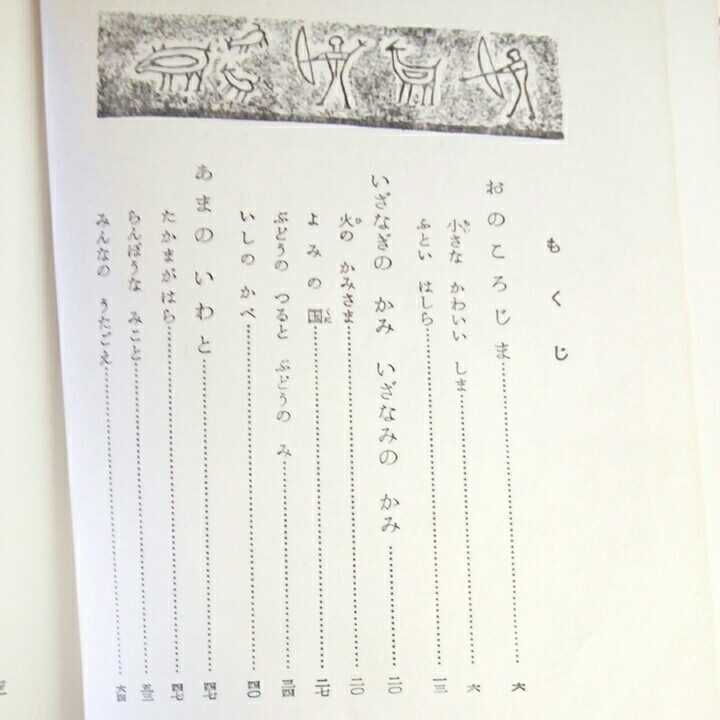 もくじ
おのころじま……六
小さな かわいい しま……六
ふとい はしら……一三
いざなぎの かみ いざなみの かみ……二〇
火の かみさま……二〇
よみの 国……二七
ぶどうの つると ぶどうの み……三四
いしの かべ……四〇
あまの いわと……四七
たかまがはら……四七
らんぼうな みこと……五三
みんなの うたごえ……六四